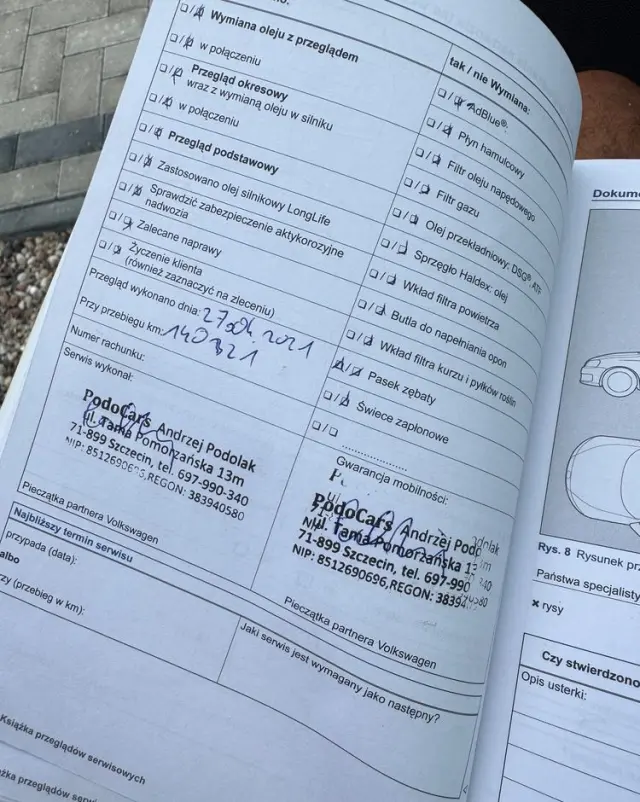 Wymiana oleju z przeglądem
w połączeniu
Przegląd okresowy
wraz z wymianą oleju w silniku
w połączeniu
Przegląd podstawowy
Zastosowano olej silnikowy LongLife
Sprawdzić zabezpieczenie aktykorozyjne
nadwozia
Zalecane naprawy
Życzenie klienta
(również zaznaczyć na zleceniu)
Przegląd wykonano dnia: 27.04.2021
Przy przebiegu km: 140321
Numer rachunku:
Serwis wykonał:
PodoCars Andrzej Podolak
ul. Tama Pomorzańska 13m
71-899 Szczecin, tel. 697-990-340
NIP: 8512690696,REGON: 383940580
Pieczątka partnera Volkswagen
tak / nie Wymiana:
AdBlue®
Płyn hamulcowy
Filtr oleju napędowego
Filtr gazu
Olej przekładniowy: DSG®, ATF
Sprzęgło Haldex: olej
Wkład filtra powietrza
Butla do napełniania opon
Wkład filtra kurzu i pyłków roślin
Pasek zębaty
Świece zapłonowe
Gwarancja mobilności:
PodoCars Andrzej
ul. Tama Pomorzańska 13m
71-899 Szczecin, tel. 697-990
NIP: 8512690696,REGON:
Pieczątka partnera Volkswagen
Najbliższy termin serwisu
przypada (data):
albo
(przebieg w km):
Jaki serwis jest wymagany jako następny?
Książka przeglądów serwisowych
przeglądów serwisowych
Rys. 8 Rysunek
Państwa
× rysy
Czy stwierdzono
Opis usterki: